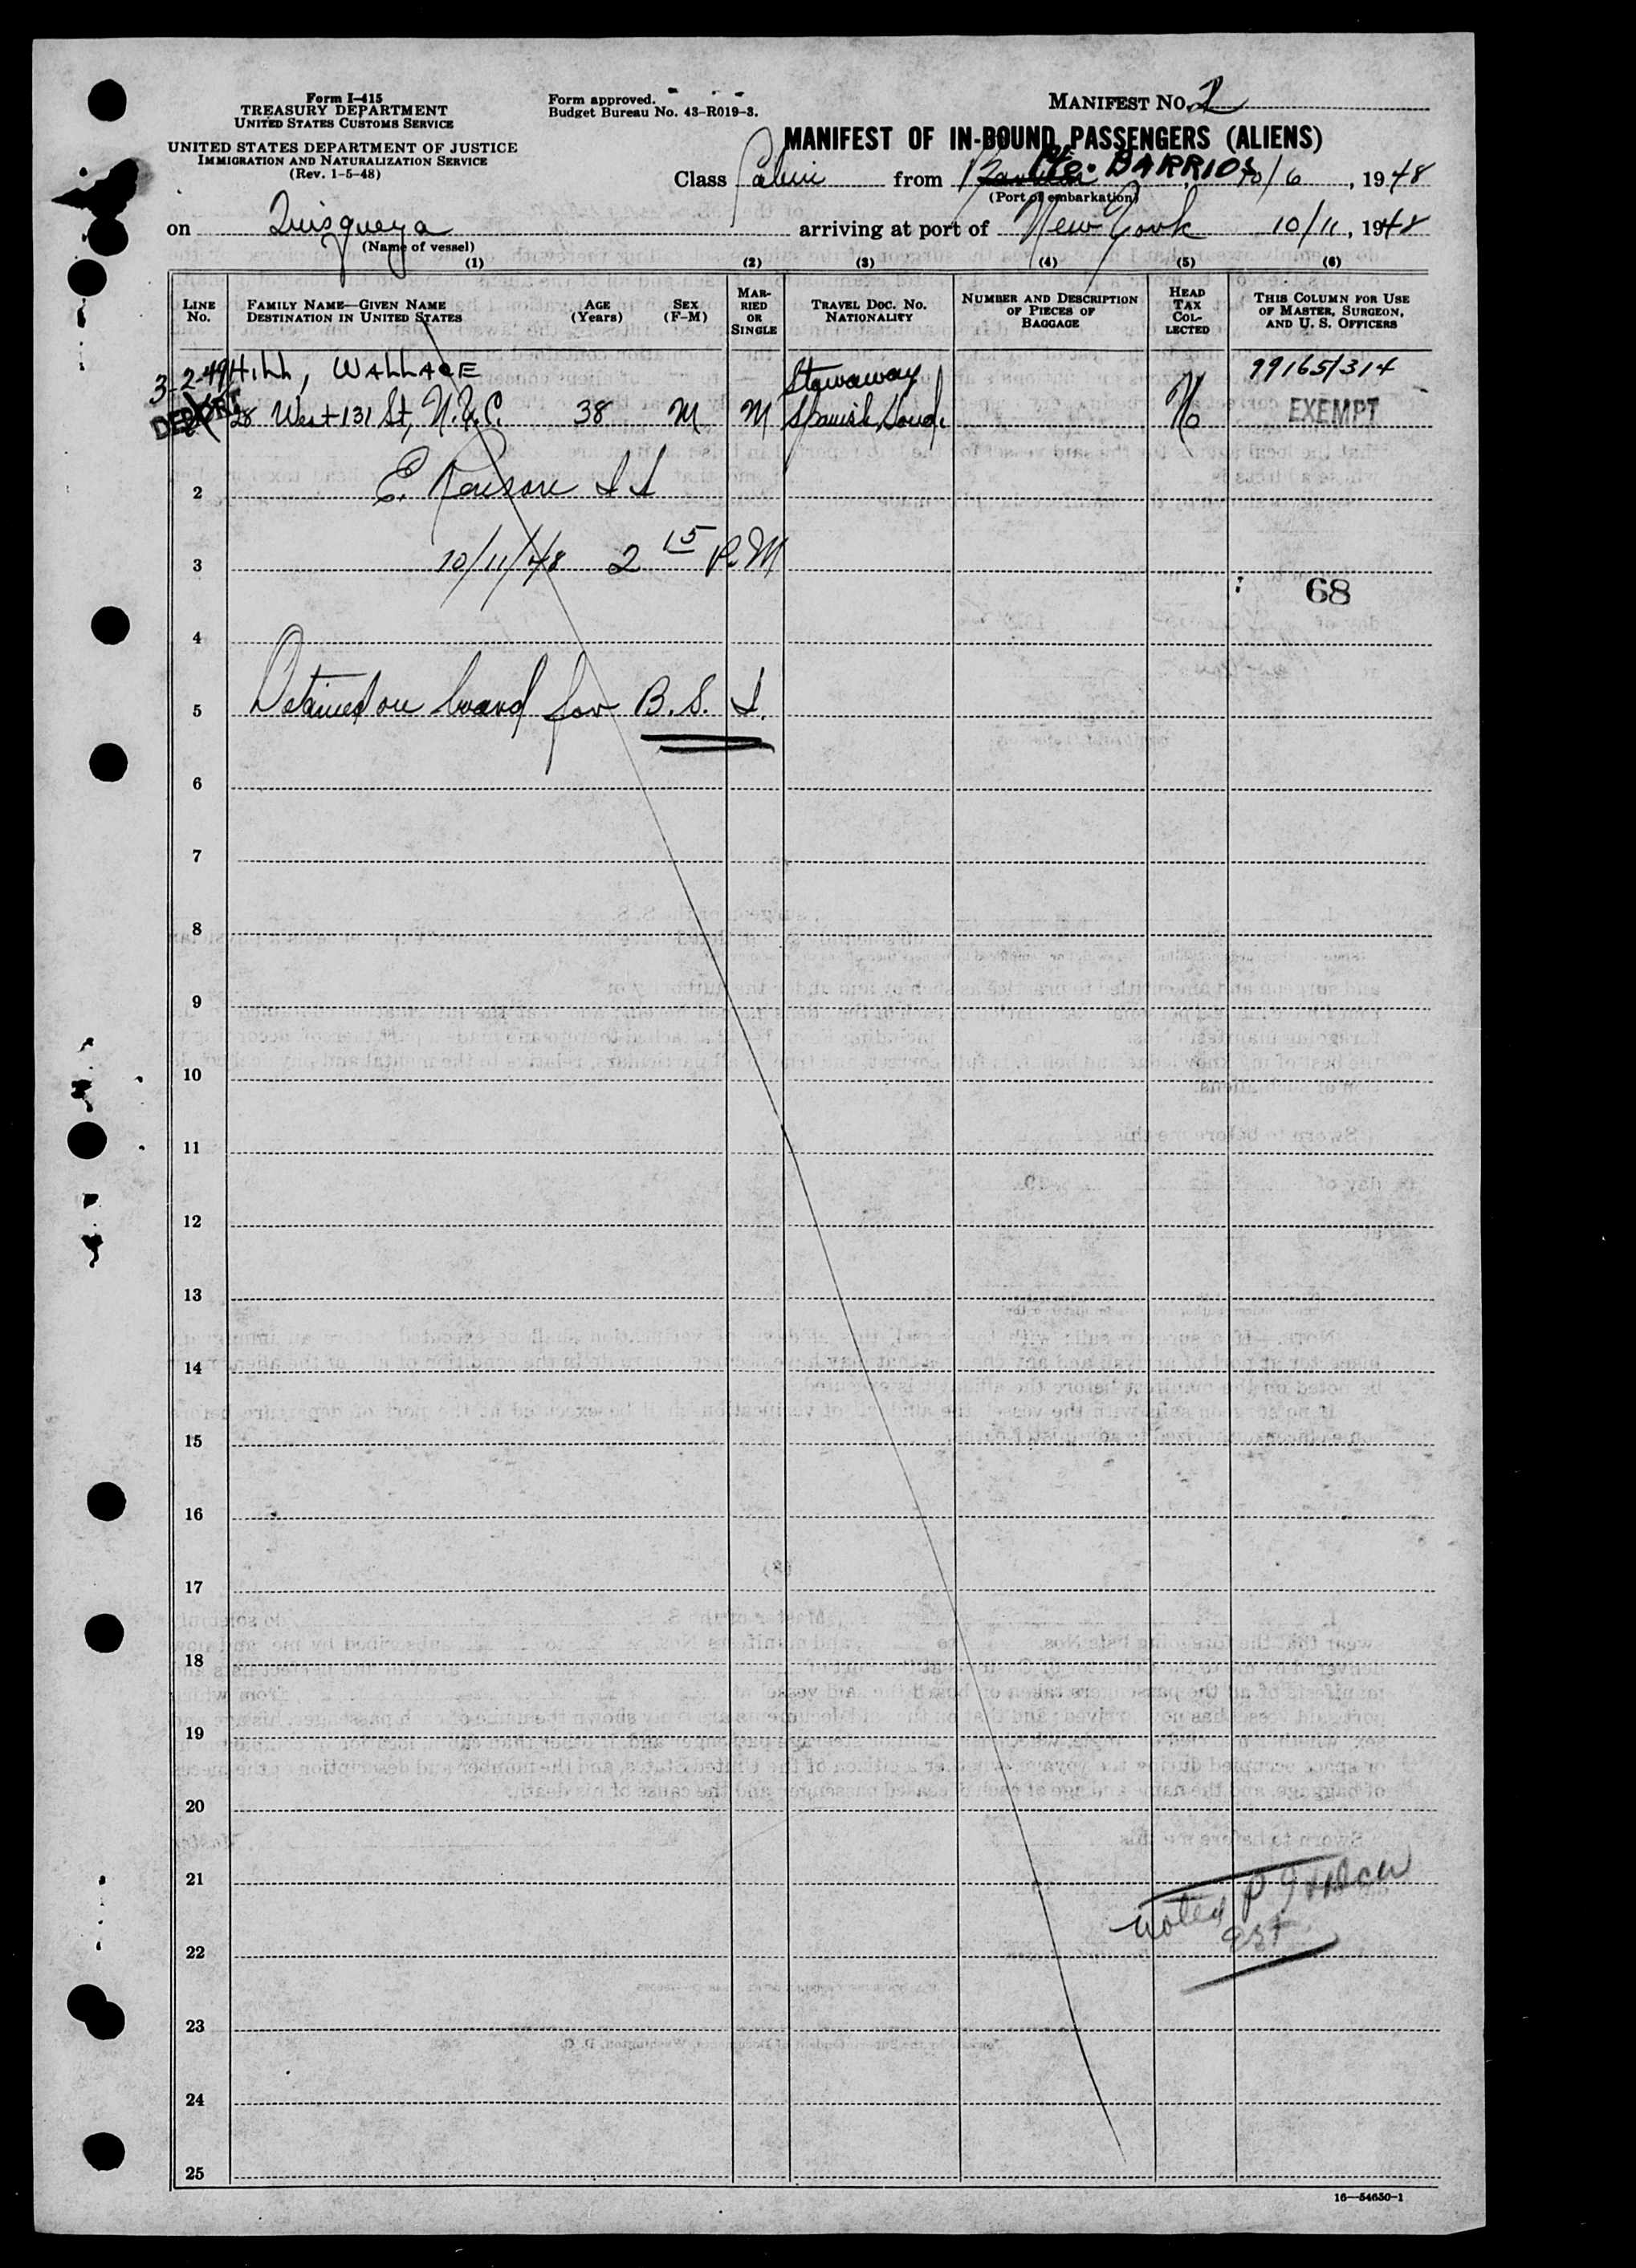 Form I-415
TREASURY DEPARTMENT
UNITED STATES CUSTOMS SERVICE
UNITED STATES DEPARTMENT OF JUSTICE
IMMIGRATION AND NATURALIZATION SERVICE
(Rev. 1-5-48)
Form approved.
Budget Bureau No. 43-R019-3.
MANIFEST NO. 2
MANIFEST OF IN-BOUND PASSENGERS (ALIENS)
Class Cabin from Pto. BARRIOS 10/6, 1948
(Port of embarkation)
on Quisqueya arriving at port of New York 10/11, 1948
(Name of vessel)
(1) (2) (3) (4) (5) (6)
LINE No.
FAMILY NAME—GIVEN NAME
DESTINATION IN UNITED STATES
AGE (Years)
SEX (F-M)
MARRIED OR SINGLE
TRAVEL DOC. NO.
NATIONALITY
NUMBER AND DESCRIPTION OF PIECES OF BAGGAGE
HEAD TAX COLLECTED
THIS COLUMN FOR USE OF MASTER, SURGEON, AND U. S. OFFICERS
3-2-49 HILL, WALLACE Stowaway 99165/314
DEPORT 28 West 131 St, N.Y.C. 38 M M Spanish Hond. No EXEMPT
2 E. Ranson
3 10/11/48 2 15 P.M
68
4
5 Detained on board for B.S.I.
6
7
8
9
10
11
12
13
14
15
16
17
18
19
20
21
noted P
22
23
24
25
16—54650-1